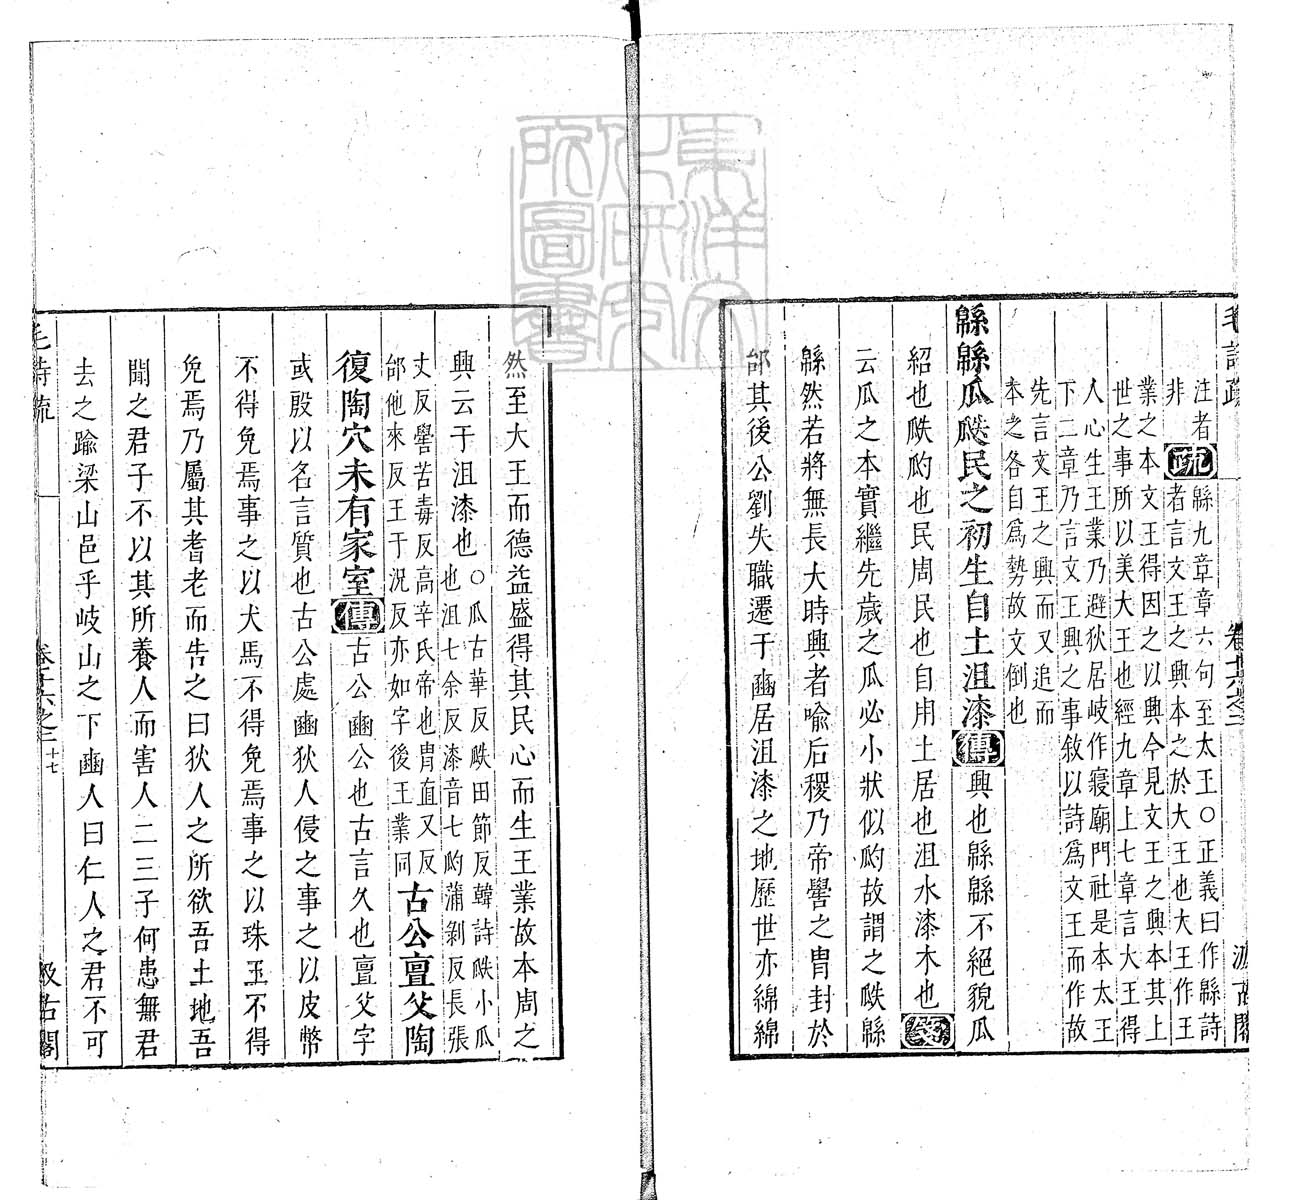 毛詩疏 卷十六之二 汲古閣
注者 非
疏
緜九章章六句至太王○正義曰作緜詩
者言文王之興本之於大王也大王作王
業之本文王得因之以興今見文王之興本其上
世之事所以美大王也經九章上七章言大王得
人心生王業乃避狄居岐作寢廟門社是本太王
下二章乃言文王興之事敘以詩爲文王而作故
先言文王之興而又追而
本之各自爲勢故文倒也
緜緜瓜瓞民之初生自土沮漆傳興也緜緜不絕貌瓜
紹也瓞瓝也民周民也自用土居也沮水漆水也箋
云瓜之本實繼先歲之瓜必小狀似瓝故謂之瓞緜
緜然若將無長大時興者喻后稷乃帝嚳之冑封於
邰其後公劉失職遷于豳居沮漆之地歷世亦綿綿
然至大王而德益盛得其民心而生王業故本周之
興云于沮漆也○瓜古華反瓞田節反韓詩瓞小瓜
也沮七余反漆音七瓝蒲剝反長張
丈反嚳苦毒反高辛氏帝也冑直又反
邰他來反王于況反亦如字後王業同
古公亶父陶
復陶穴未有家室傳古公豳公也古言久也亶父字
或殷以名言質也古公處豳狄人侵之事之以皮幣
不得免焉事之以犬馬不得免焉事之以珠玉不得
免焉乃屬其耆老而告之曰狄人之所欲吾土地吾
聞之君子不以其所養人而害人二三子何患無君
去之踰梁山邑乎岐山之下豳人曰仁人之君不可
毛詩疏 卷十六之二 十七 汲古閣
東洋文化研究所圖書